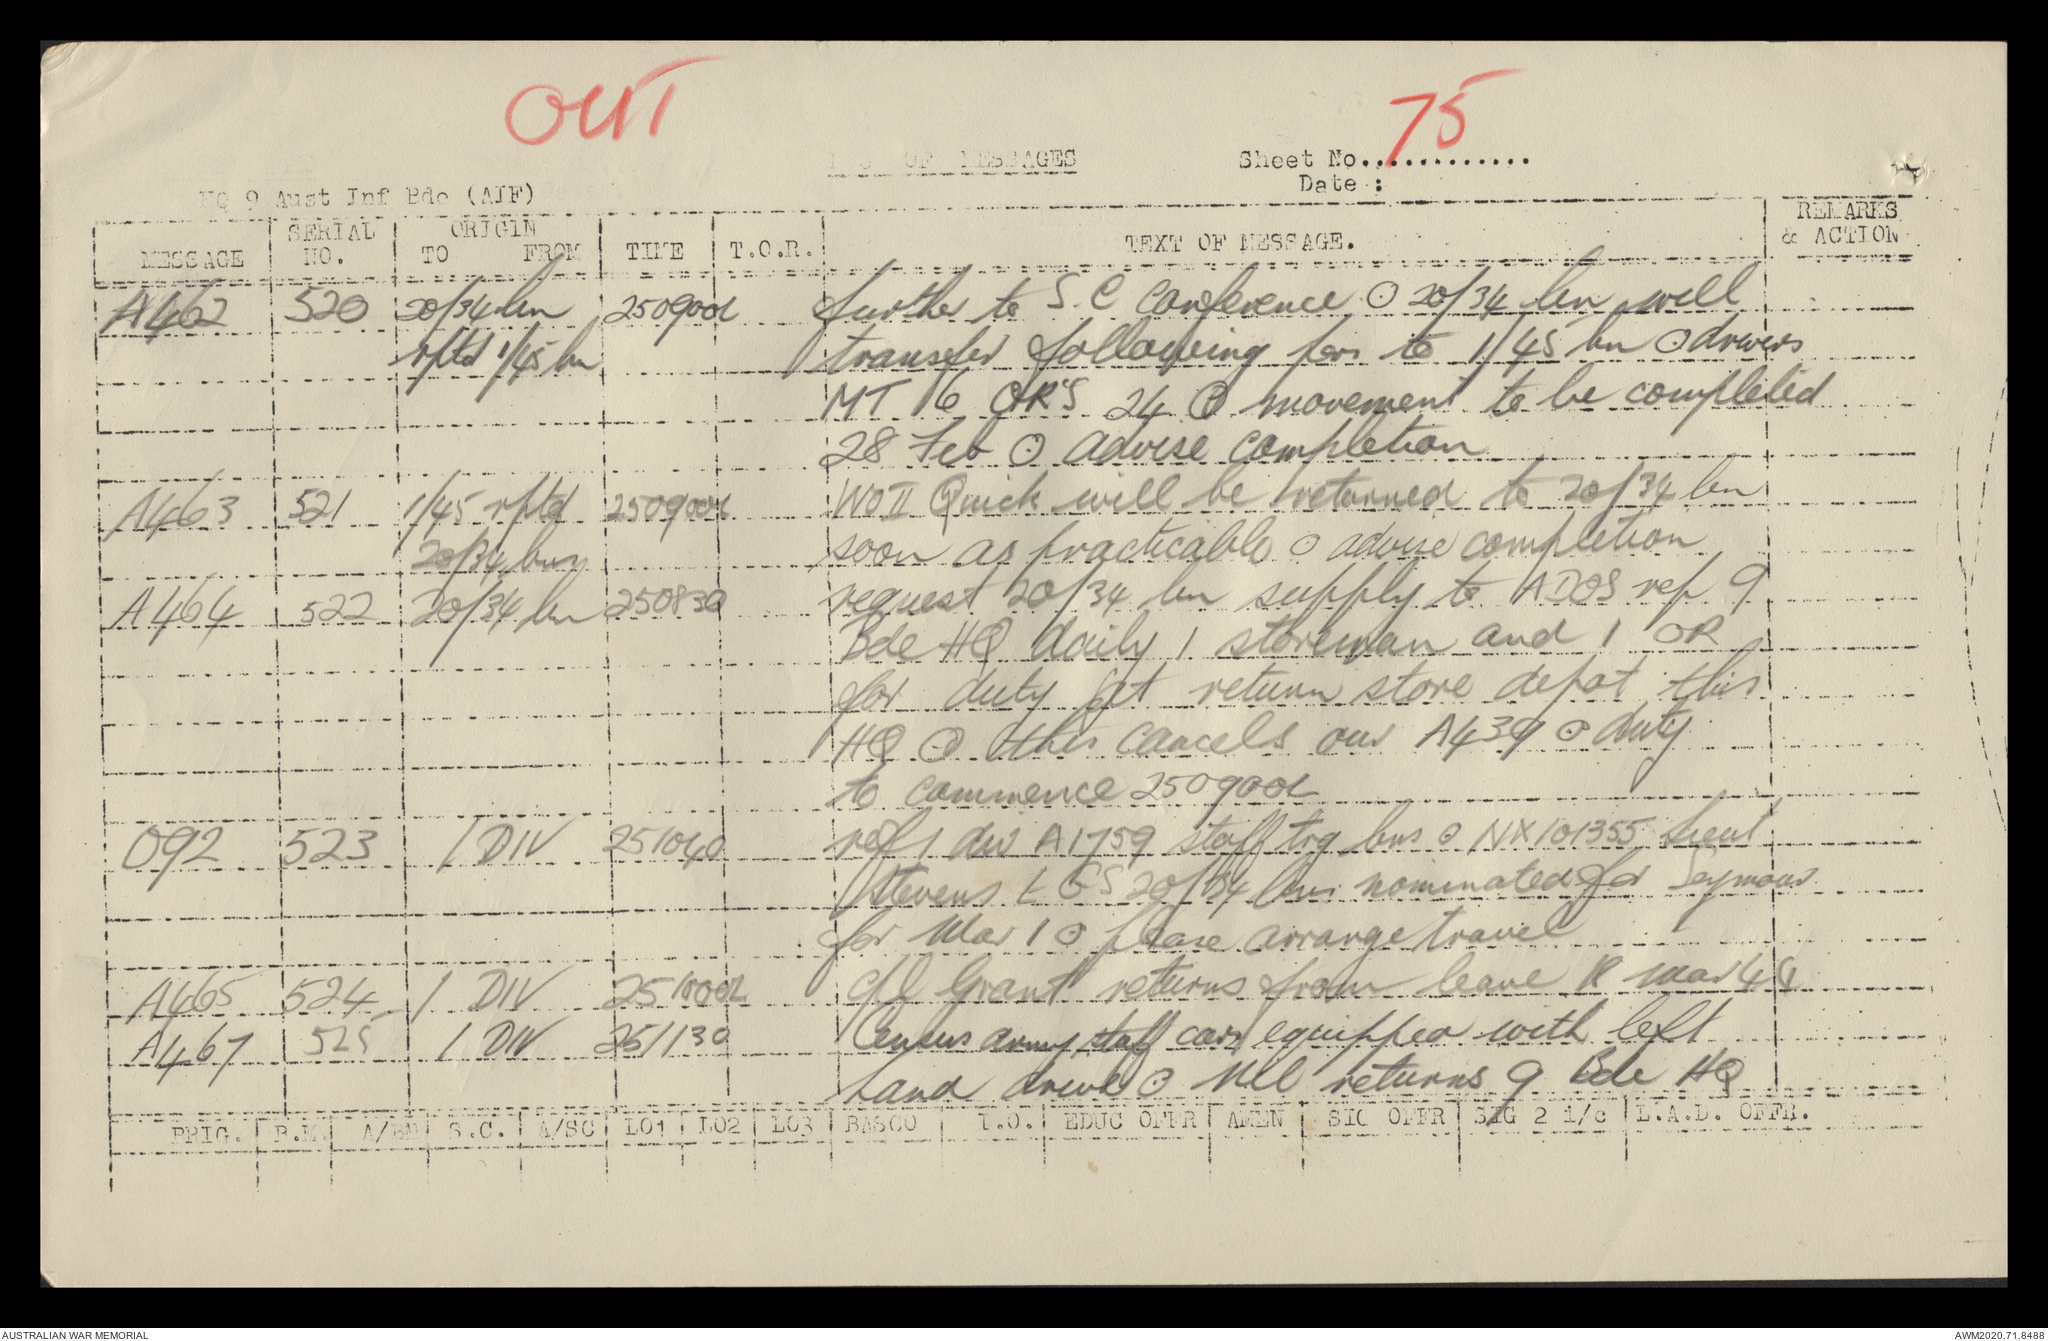 OUT
75
LOG OF MESSAGES
Sheet No.............
Date :
HQ 9 Aust Inf Bde (AIF)
MESSAGE SERIAL NO. ORIGIN TO FROM TIME T.O.R. TEXT OF MESSAGE. REMARKS & ACTION
A462 520 20/34 bn 250900L further to S.C conference ⊙ 20/34 bn will
rptd 1/45 bn transfer following pers to 1/45 bn ⊙ drivers
MT 6 OR'S 24 ⊙ movement to be completed
28 Feb ⊙ advise completion
A463 521 1/45 rptd 250900L WOII Quick will be returned to 20/34 bn
20/34 bns soon as practicable ⊙ advise completion
A464 522 20/34 bn 250830 request 20/34 bn supply to ADOS rep 9
Bde HQ daily 1 storeman and 1 OR
for duty at return store depot this
HQ ⊙ this cancels our A439 ⊙ duty
to commence 250900L
O92 523 1 DIV 251040 ref 1 div A1759 staff trg bns ⊙ NX101355 Lieut
Stevens L GS 20/34 bn nominated for Seymour
for Mar 1 ⊙ please arrange travel
A465 524 1 DIV 251000L Grant returns from leave Mar 44
A467 525 1 DIV 251130 Census army staff cars equipped with left
hand drive ⊙ Nil returns 9 Bde HQ
BRIG. B.M. A/BM S.C. A/SC LO1 LO2 LO3 BASCO T.O. EDUC OFFR AMEN SIG OFFR SIG 2 i/c L.A.D. OFFR.
AUSTRALIAN WAR MEMORIAL AWM2020.71.8488